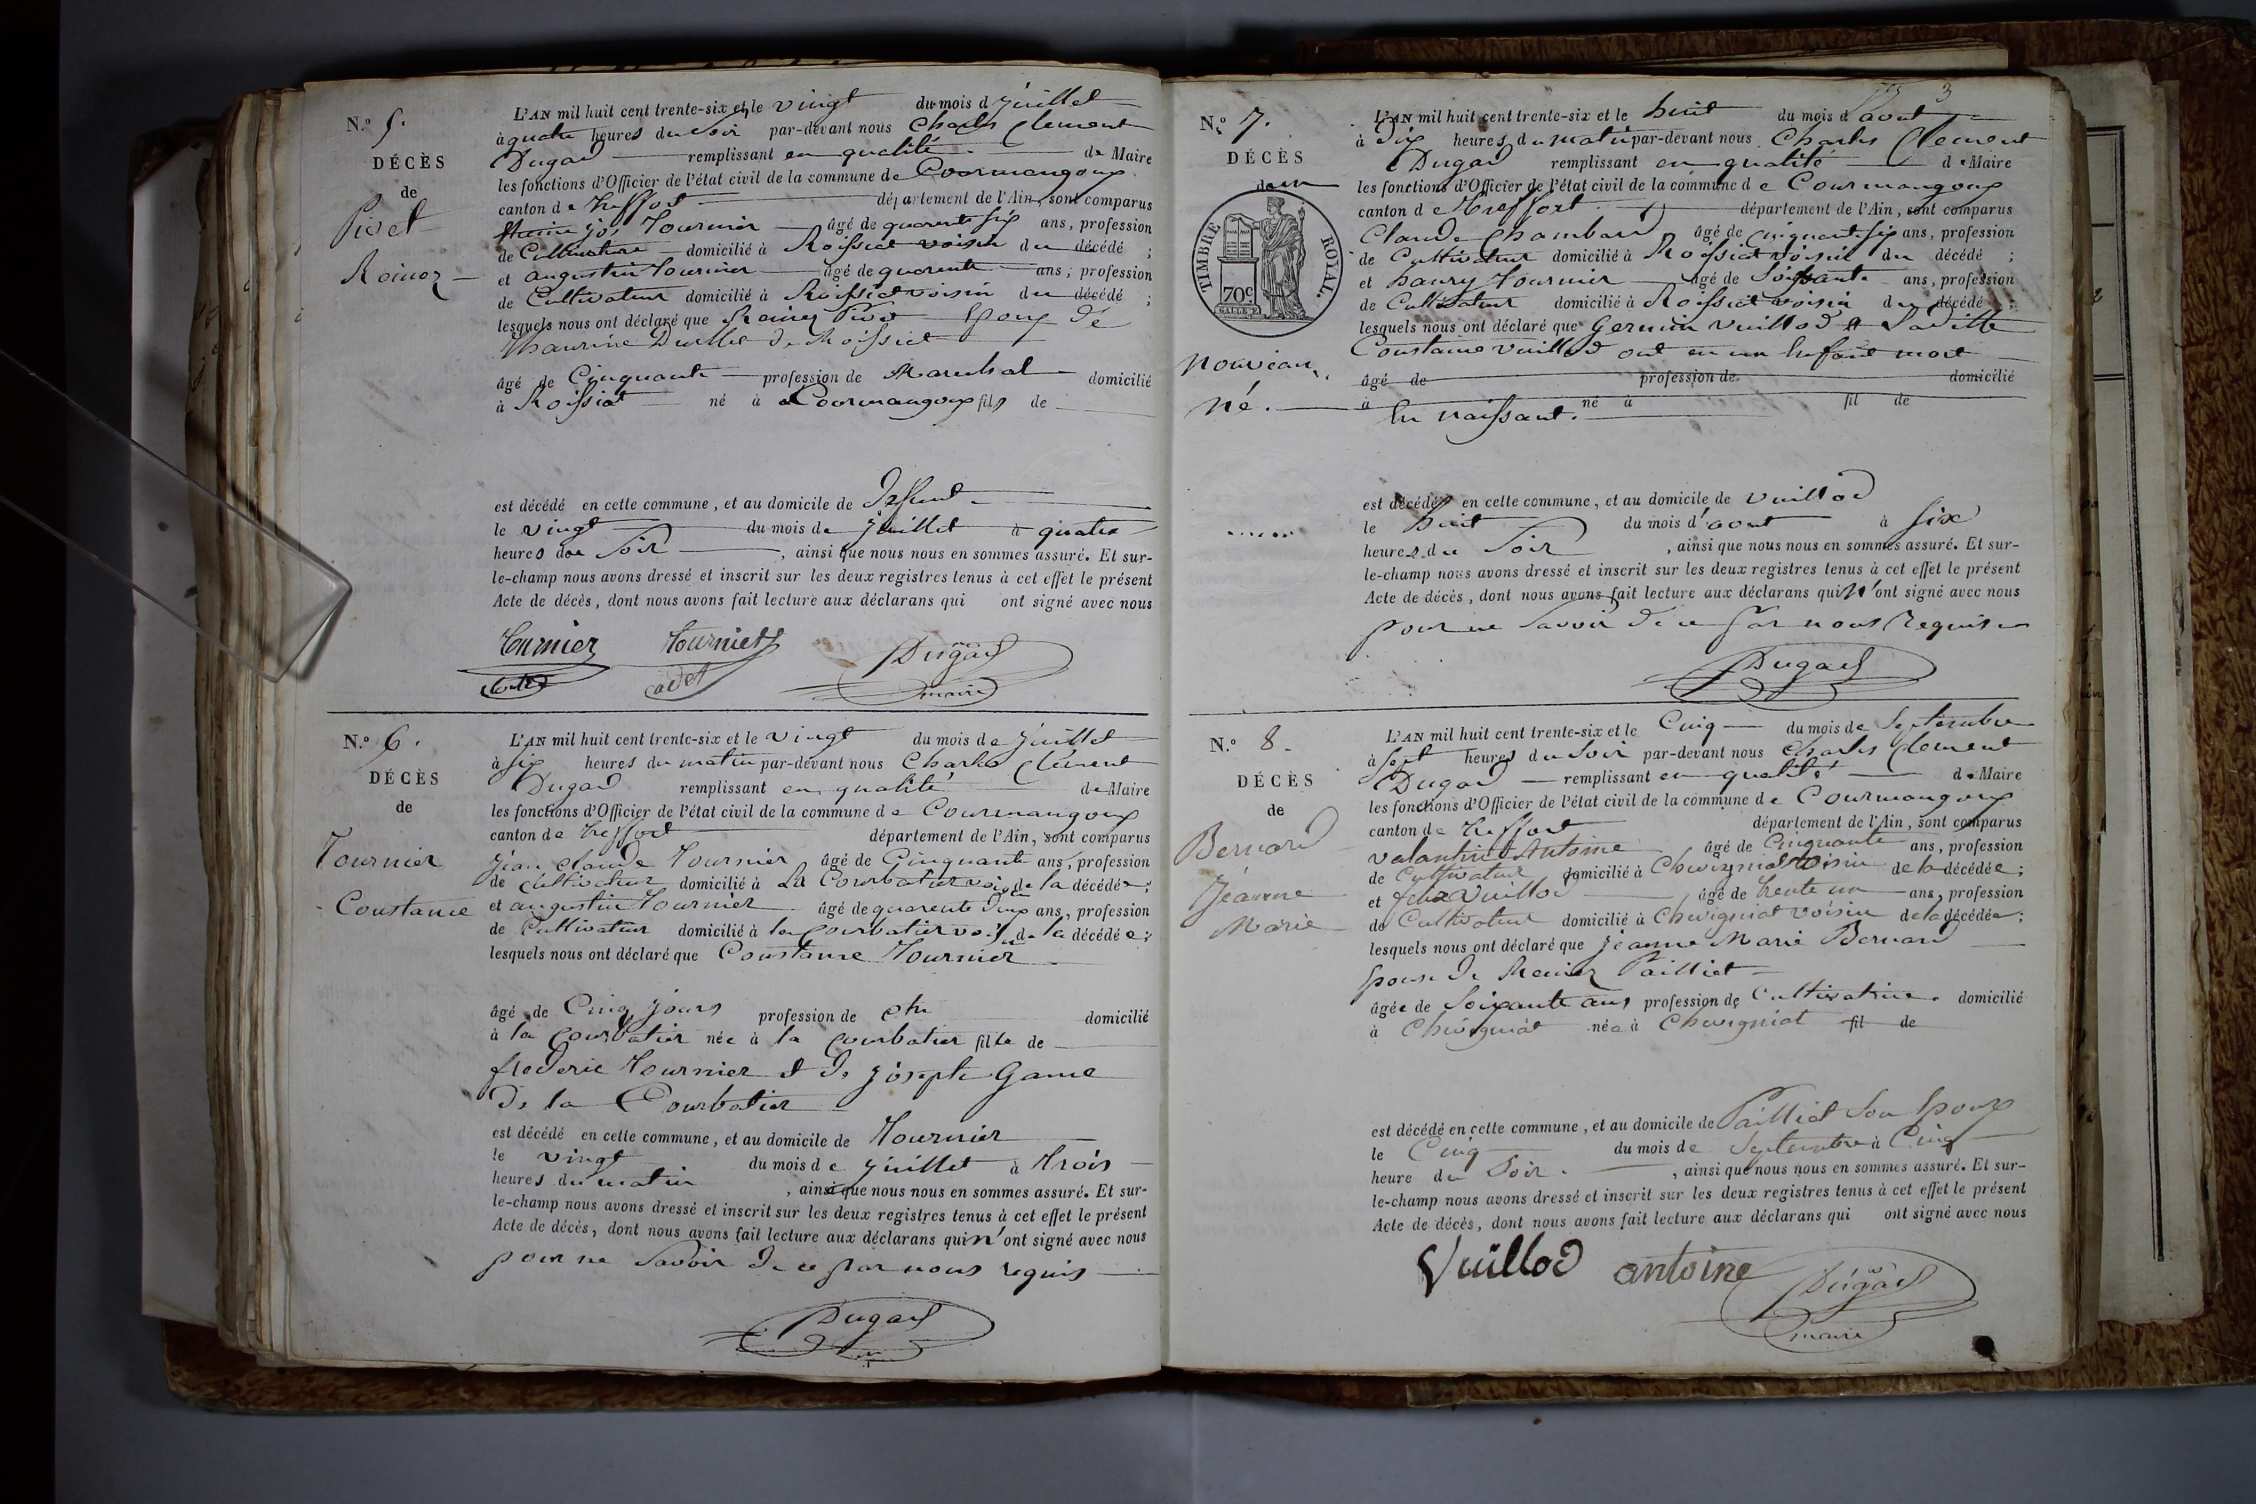 N.º 5.
DÉCÈS
de
Pivet
L'AN mil huit cent trente-six et le vingt du mois d juillet
à quatre heures du soir par-devant nous Charles Clement
Dugad remplissant en qualité de Maire
les fonctions d'Officier de l'état civil de la commune de Courmangoux
canton de Treffort département de l'Ain, sont comparus
Tournier âgé de quarante six ans, profession
de Cultivateur domicilié à Roissiat voisin du décédé ;
et augustin Tournier âgé de quarente ans ; profession
de Cultivateur domicilié à Roissiat voisin du décédé ;
lesquels nous ont déclaré que
de Roissiat
âgé de Cinquante profession de Marechal domicilié
à Roissiat né à Courmangoux fils de
est décédé en cette commune, et au domicile de
le vingt du mois de juillet à quatre
heures du soir , ainsi que nous nous en sommes assuré. Et sur-
le-champ nous avons dressé et inscrit sur les deux registres tenus à cet effet le présent
Acte de décès, dont nous avons fait lecture aux déclarans qui ont signé avec nous
Tournier Tournier Dugad
cadet maire
N.º 6.
DÉCÈS
de
Tournier
Constance
L'AN mil huit cent trente-six et le vingt du mois de juillet
à six heures du matin par-devant nous Charles Clément
Dugad remplissant en qualité de Maire
les fonctions d'Officier de l'état civil de la commune de Courmangoux
canton de Treffort département de l'Ain, sont comparus
jean claude Tournier âgé de Cinquante ans, profession
de Cultivateur domicilié à La Courbatier voisin de la décédée ;
et augustin Tournier âgé de quarente deux ans, profession
de Cultivateur domicilié à la Courbatier voisin de la décédée ;
lesquels nous ont déclaré que Constance Tournier
âgé de Cinq jours profession de domicilié
à la Courbatier née à la Courbatier fille de
frederic Tournier et de josepte Game
De la Courbatier
est décédé en cette commune, et au domicile de Tournier
le vingt du mois de juillet à trois
heures du matin , ainsi que nous nous en sommes assuré. Et sur-
le-champ nous avons dressé et inscrit sur les deux registres tenus à cet effet le présent
Acte de décès, dont nous avons fait lecture aux déclarans qui n'ont signé avec nous
pour ne savoir de ce par nous requis
Dugad
N.º 7.
DÉCÈS
de un
TIMBRE ROYAL.
70c
nouveau
né.
3
L'AN mil huit cent trente-six et le huit du mois d'aout
à Dix heures du matin par-devant nous Charles Clement
Dugad remplissant en qualité de Maire
les fonctions d'Officier de l'état civil de la commune de Courmangoux
canton de Treffort département de l'Ain, sont comparus
Claude Chambard âgé de Cinquante six ans, profession
de Cultivateur domicilié à Roissiat voisin du décédé ;
et haury Tournier âgé de Soissante ans, profession
de Cultivateur domicilié à Roissiat voisin du décédé ;
lesquels nous ont déclaré que Germin Vuillod et
Constance Vuillod ont eu un Enfant mort
âgé de profession de domicilié
à né à fil de
En naissant.
est décédé en cette commune, et au domicile de Vuillod
le huit du mois d'aout à six
heures du soir , ainsi que nous nous en sommes assuré. Et sur-
le-champ nous avons dressé et inscrit sur les deux registres tenus à cet effet le présent
Acte de décès, dont nous avons fait lecture aux déclarans qui n'ont signé avec nous
pour ne savoir de ce par nous Requis
Dugad
N.º 8.
DÉCÈS
de
Bernard
Jéanne
Marie
L'AN mil huit cent trente-six et le Cinq du mois de Septembre
à sept heures du soir par-devant nous Charles Clement
Dugad remplissant en qualité de Maire
les fonctions d'Officier de l'état civil de la commune de Courmangoux
canton de Treffort département de l'Ain, sont comparus
Valantin Antoine âgé de Cinquante ans, profession
de Cultivateur domicilié à Chevigniat voisin de la décédée ;
et felix Vuillod âgé de trente un ans, profession
de Cultivateur domicilié à Chevigniat voisin de la décédée ;
lesquels nous ont déclaré que jeanne Marie Bernard
Epouse de Pailliet
âgée de Soixante ans profession de Cultivatrice domicilié
à Chevigniat née à Chevigniat fil de
est décédé en cette commune, et au domicile de Pailliet Son Epoux
le Cinq du mois de Septembre à Cinq
heure du Soir. , ainsi que nous nous en sommes assuré. Et sur-
le-champ nous avons dressé et inscrit sur les deux registres tenus à cet effet le présent
Acte de décès, dont nous avons fait lecture aux déclarans qui ont signé avec nous
Vuillod antoine Dugad
maire